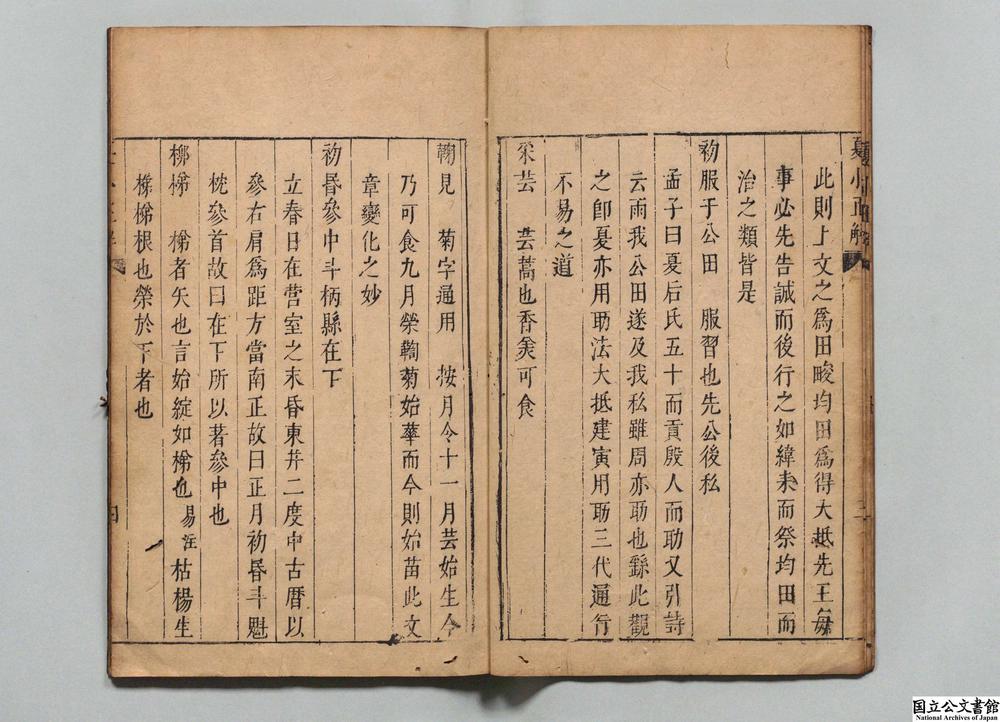 夏小正解
此則上文之爲田畯均田爲得大抵先王每
事必先告誠而後行之如緯耒而祭均田而
治之類皆是
初服于公田　服習也先公後私
孟子曰夏后氏五十而貢殷人而助又引詩
云雨我公田遂及我私雖周亦助也繇此觀
之卽夏亦用助法大抵建寅用助三代通行
不易之道
采芸　芸蒿也香美可食
三
鞠見　菊字通用　按月令十一月芸始生今
乃可食九月榮鞠菊始華而今則始苗此文
章變化之妙
初昏參中斗柄縣在下
立春日在营室之末昏東井二度中古曆以
參右肩爲距方當南正故曰正月初昏斗魁
枕參首故曰在下所以著參中也
柳稊　稊者矢也言始綻如稊也易注枯楊生
稊稊根也榮於下者也
四
国立公文書館
National Archives of Japan